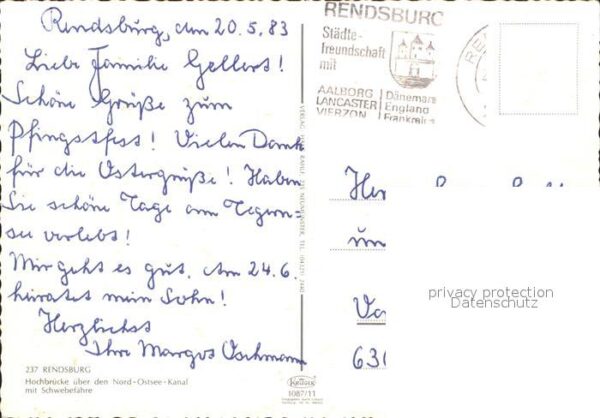 Rendsburg, den 20.5.83
Liebe Familie Gellers!
Schöne Grüße zum
Pfingstfest! Vielen Dank
für die Ostergrüße! Haben
Sie schöne Tage am Tegern=
see verlebt!
Mir geht es gut. Am 24.6.
heiratet mein Sohn!
Herzlichst
Ihre Margos Oschmann
237 RENDSBURG
Hochbrücke über den Nord-Ostsee-Kanal
mit Schwebefähre
KRÜGER
1087/11
RENDSBURG
Städte-
freundschaft
mit
AALBORG Dänemark
LANCASTER England
VIERZON Frankreich
un
63
privacy protection
Datenschutz